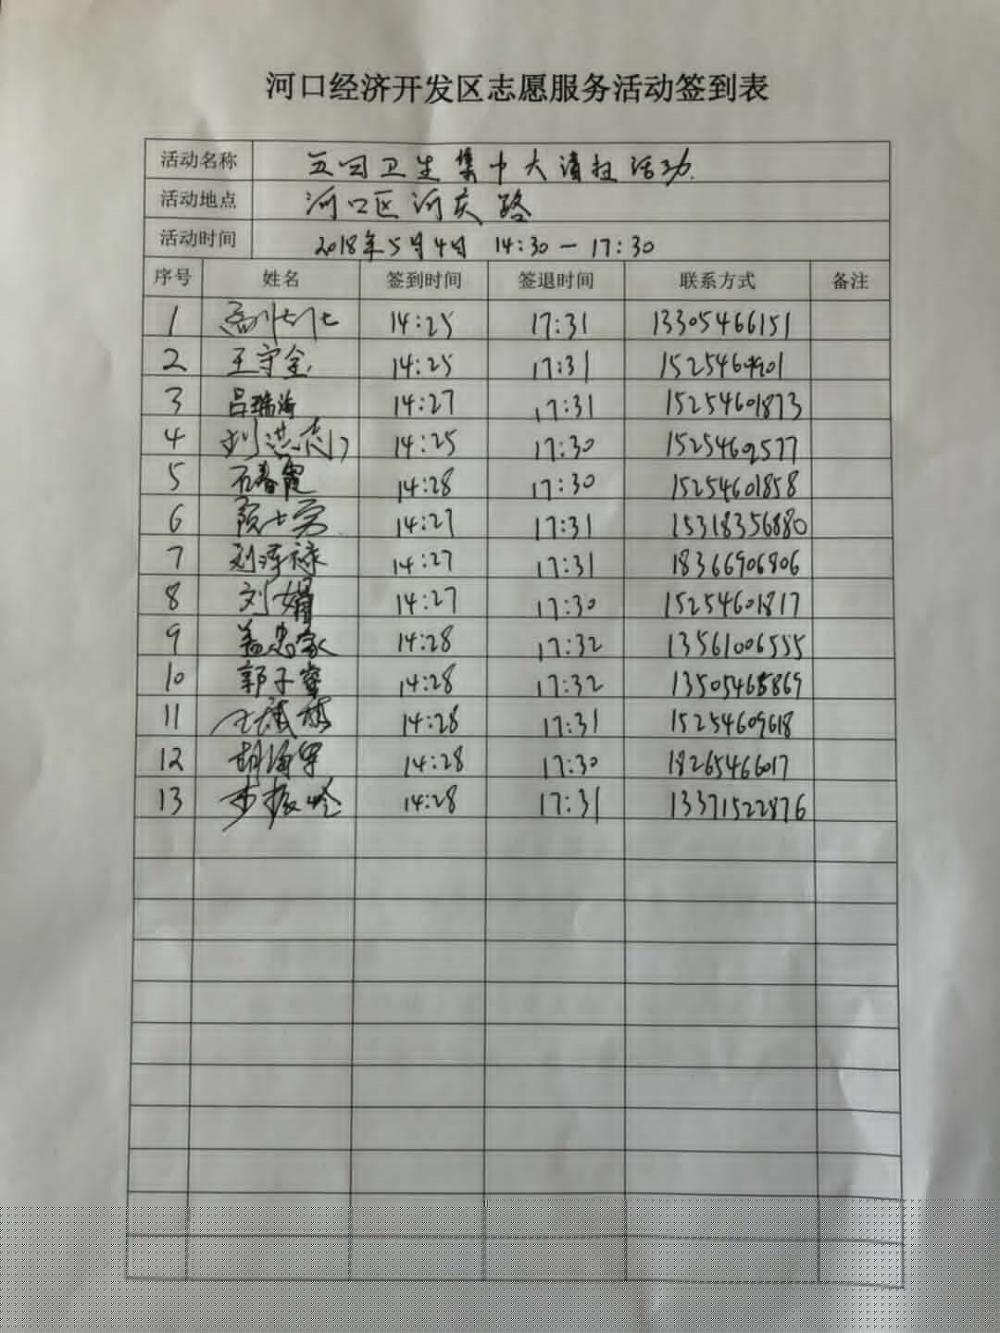 河口经济开发区志愿服务活动签到表
活动名称 五四卫生集中大清扫活动.
活动地点 河口区河庆路
活动时间 2018年5月4日 14:30-17:30
序号 姓名 签到时间 签退时间 联系方式 备注
1 14:25 17:31 13305466151
2 王守金 14:25 17:31
3 吕瑞海 14:27 17:31 15254601873
4 刘洪 14:25 17:30 15254602577
5 石春霞 14:28 17:30 15254601858
6 14:27 17:31 15318356880
7 刘泽禄 14:27 17:31 18366906806
8 刘娟 14:27 17:30 15254601817
9 孟忠家 14:28 17:32 13561006555
10 郭子睿 14:28 17:32
11 14:28 17:31 15254609618
12 胡海军 14:28 17:30 18265466017
13 14:28 17:31 13371522876